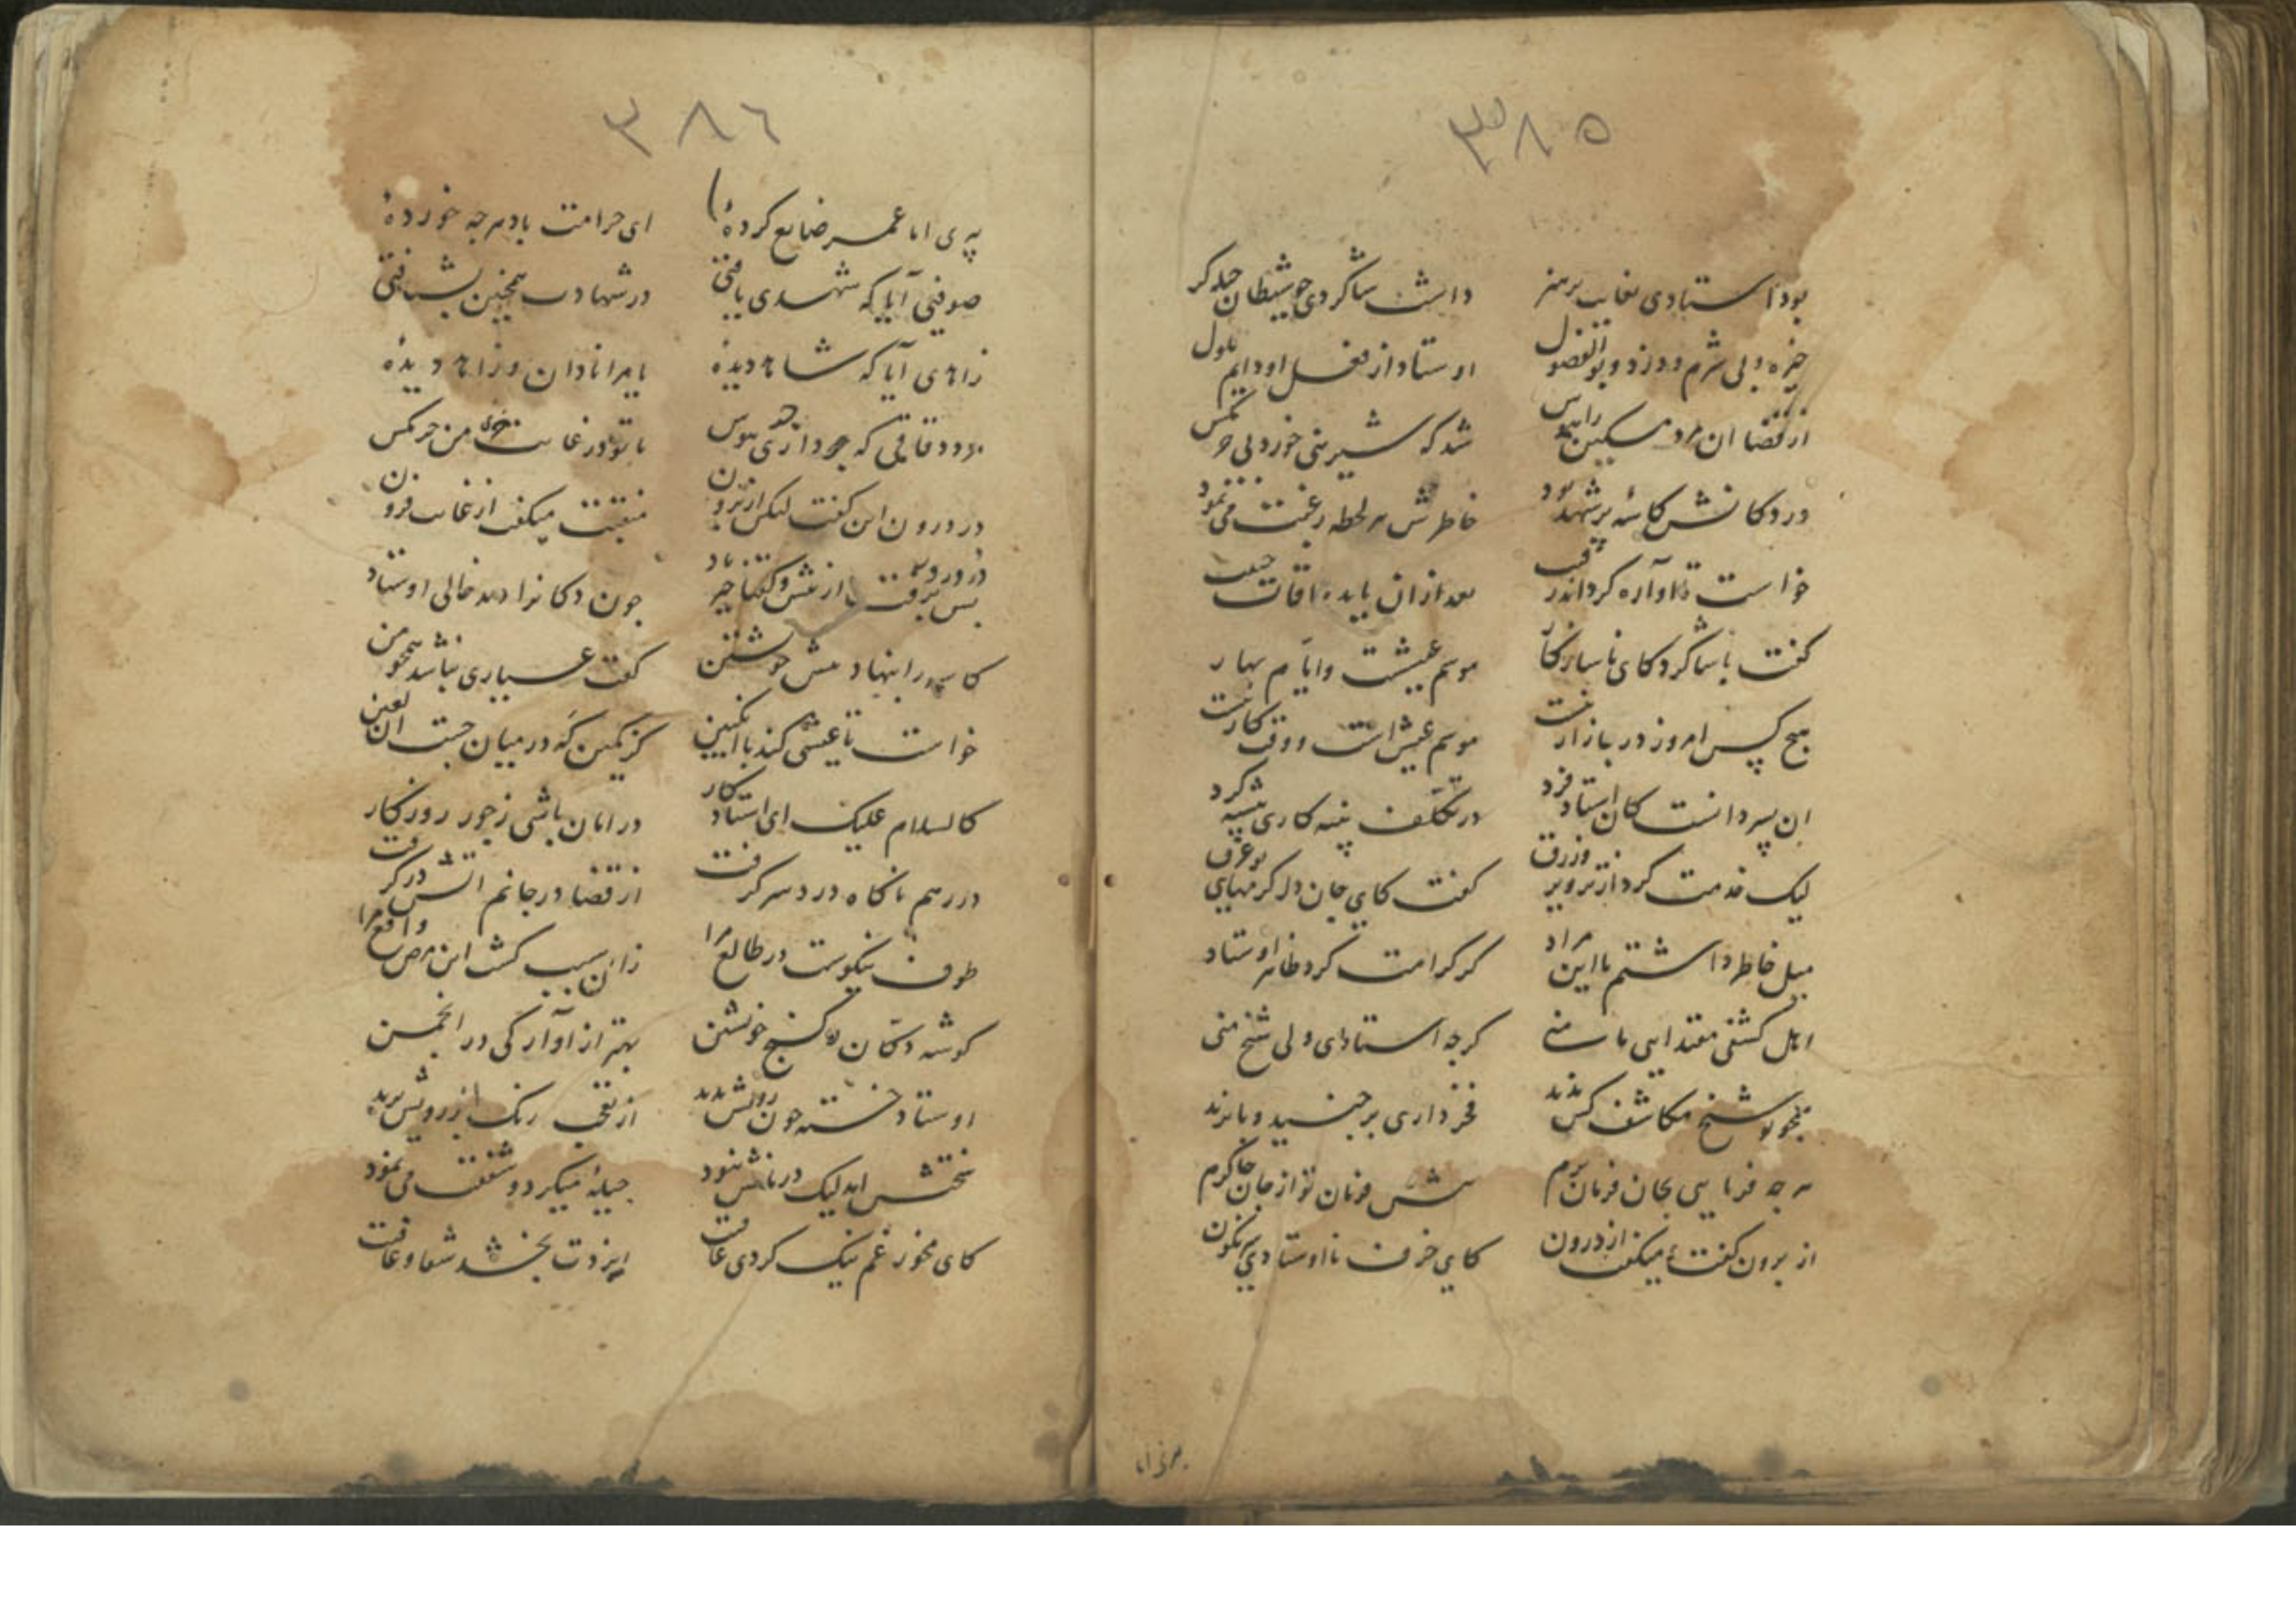 ۳۸۵
بود استادی بغایت پرهنر داشت شاگردی چو شیطان حیله‌گر
خیره و بی شرم و دزد و بوالفضول اوستاد از فعل او دایم ملول
از قضا آن مرد مسکین را هوس شد که شیرینی خورد بی خرمگس
در دکانش کاسهٔ پر شهد بود خاطرش هر لحظه رغبت می نمود
خواست تا آواره گرداند بعد از آن یابد
گفت با شاگرد کای ناسازگار موسم عیشت و ایام بهار
هیچ کس امروز در بازار نیست موسم عیش است و وقت کار نیست
این پسر دانست کان استاد فرد در تکلف پنبه کاری پیشه کرد
لیک خدمت کرد از تزویر و زرق گفت کای جان دلم
میل خاطر داشتم با این مراد کر کرامت کرد ظاهر اوستاد
اهل کشفی مقتدایی منی گرچه استادی ولی شیخ منی
همچو تو شیخ مکاشف کس ندید فخر داری بر جنید و بایزید
هرچه فرمایی بجان فرمان برم پیش فرمان تو از جان
از برون گفت میگفت از درون کای خرف نااوستاد
برزی انا
۳۸۶
ای انا عمر ضایع کردهٔ ای حرامت باد هرچه خوردهٔ
صوفیی آیا که شهدی یافتی در شهادت همچنین بشتافتی
زاهدی آیا که شاهد دیدهٔ یا مرا نادان و زاهد دیدهٔ
داری هوس با تو در غایت من خرمگس
در درون این گفت لیکن از برون منقبت میگفت از غایت فزون
پس برفت از پیش و گفتا خیر باد چون دکانرا دید خالی اوستاد
کاسه را بنهاد پیش خویشتن گفت عیاری نباشد همچو من
خواست تا عیشی کند با انگبین کز کمین که در میان جست آن لعین
کالسلام علیک ای استاد کار در امان باشی ز جور روزگار
در رهم ناگاه درد سر گرفت از قضا در جانم آتش در گرفت
طوف نیکوست در طالع مرا زان سبب گشت این مرض واقع مرا
گوشه دکان و کنج خویشتن بهتر از آوارگی در انجمن
اوستاد خسته چون رویش بدید از تعجب رنگ از رویش پرید
لیک درمانش نبود حیلهٔ میکرد و شفقت می نمود
کای مخور غم نیک گردی عاقبت ایزدت بخشد شفا و عافیت